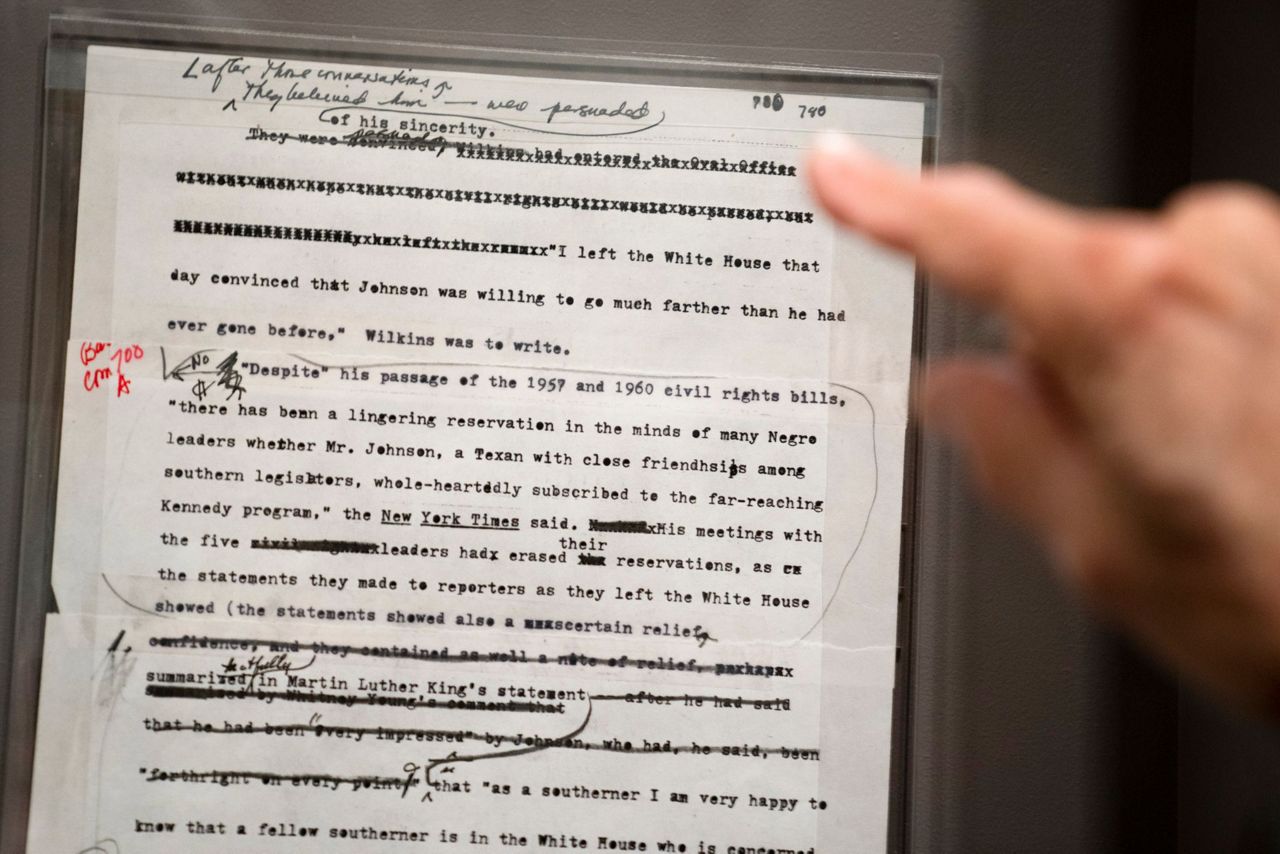 after those conversations
They believed him — were persuaded
780 780
of his sincerity.
They were convinced, persuaded Wilkins had entered the Oval Office
without much hope that the civil rights bill would be passed, but
"I left the White House that
day convinced that Johnson was willing to go much farther than he had
ever gone before," Wilkins was to write.
No
700
A
"Despite" his passage of the 1957 and 1960 eivil rights bills,
"there has benn a lingering reservation in the minds of many Negro
leaders whether Mr. Johnson, a Texan with close friendhsips among
southern legislators, whole-heartedly subscribed to the far-reaching
Kennedy program," the New York Times said. His meetings with
their
the five leaders hadx erased the reservations, as
the statements they made to reporters as they left the White House
showed (the statements showed also a certain relief,
1. confidence, and they contained as well a note of relief,
tactfully
summarized in Martin Luther King's statement — after he had said
summarized by Whitney Young's comment that
that he had been "very impressed" by Johnson, who had, he said, been
"forthright on every point," that "as a southerner I am very happy to
know that a fellow southerner is in the White House who is concerned